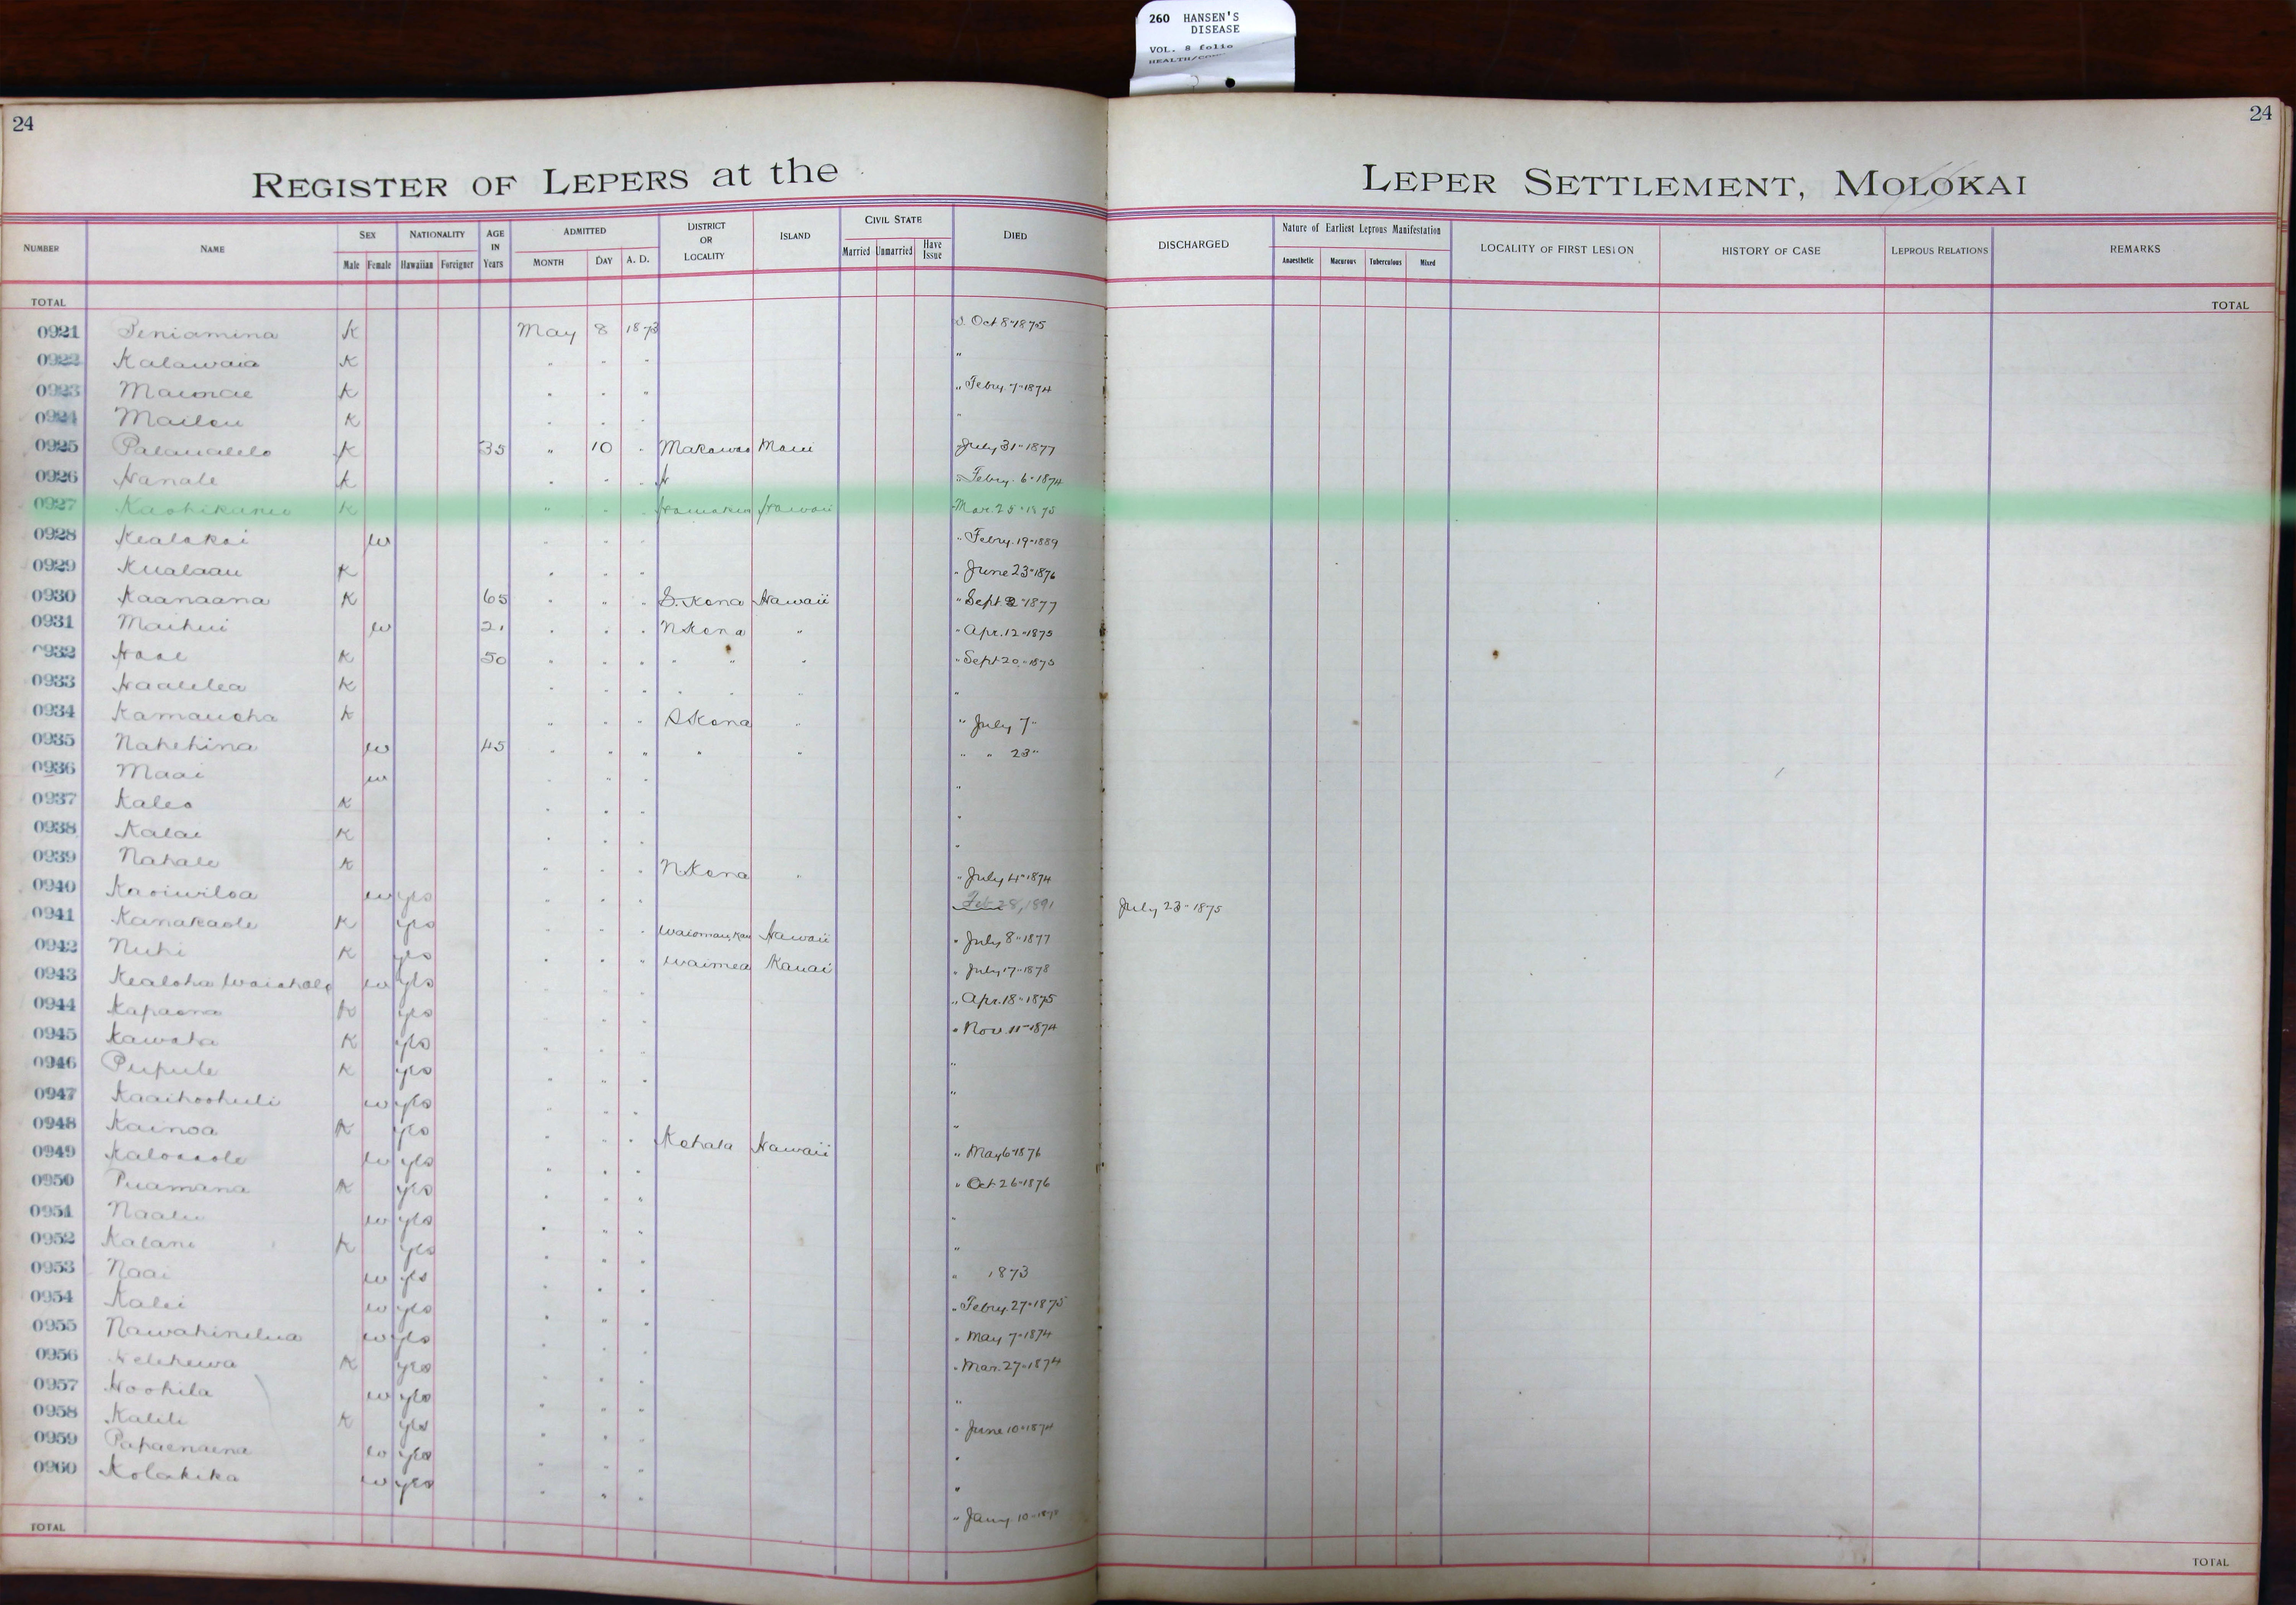 260 HANSEN'S
DISEASE
VOL. 8 folio
24
24
REGISTER OF LEPERS at the LEPER SETTLEMENT, MOLOKAI
NUMBER NAME SEX NATIONALITY AGE IN Years ADMITTED DISTRICT OR LOCALITY ISLAND CIVIL STATE DIED DISCHARGED Nature of Earliest Leprous Manifestation LOCALITY OF FIRST LESION HISTORY OF CASE LEPROUS RELATIONS REMARKS
Male Female Hawaiian Foreigner MONTH DAY A. D. Married Unmarried Have Issue Anaesthetic Macurous Tuberculous Mixed
TOTAL TOTAL
0921 Peniamina K May 8 1873 d. Oct 8" 1875
0922 Kalawaia K " " " "
0923 K " " " " Febry. 7" 1874
0924 K " " " "
0925 K 35 " 10 " Makawao Maui July 31" 1877
0926 Hanale K " " " H " Febry. 6" 1874
0927 K " " " Hamakua Hawaii Mar. 25" 1875
0928 Kealakai w " " " " Febry. 19" 1889
0929 Kualaau K " " " " June 23" 1876
0930 Kaanaana K 65 " " " S. Kona Hawaii " Sept 2" 1877
0931 Maihui w 21 " " " N Kona " " Apr. 12" 1875
0932 K 50 " " " " " " " Sept 20" 1875
0933 Haalilea K " " " " " " "
0934 Kamauoha K " " " S Kona " " July 7"
0935 Nahehina w 45 " " " " " " " 23"
0936 Maai w " " " "
0937 Kaleo K " " " "
0938 Kalai K " " " "
0939 Nahale K " " " N Kona " " July 4" 1874
0940 Kaoiwiloa w yes " " " Feb 28, 1891 July 23" 1875
0941 Kanakaole K yes " " " Kau Hawaii " July 8" 1877
0942 Nuhi K yes " " " Waimea Kauai " July 17" 1878
0943 Kealoha w yes " " " " Apr. 18" 1875
0944 Kapaona K yes " " " " Nov. 11" 1874
0945 Kawaha K yes " " " "
0946 Pupule K yes " " " "
0947 Kaaihoohuli w yes " " " "
0948 Kainoa K yes " " " Kohala Hawaii " May 6" 1876
0949 w yes " " " " Oct 26" 1876
0950 Puamana K yes " " " "
0951 Naalu w yes " " " "
0952 Kalani K yes " " " " 1873
0953 Naai w yes " " " " Febry. 27" 1875
0954 Kalei w yes " " " " May 7" 1874
0955 Nawahinelua w yes " " " " Mar. 27" 1874
0956 K yes " " " "
0957 Hoohila w yes " " " " June 10" 1874
0958 Kalili K yes " " " "
0959 Papaenaena w yes " " " "
0960 Kolakika w yes " " " " Jany. 10"
TOTAL TOTAL